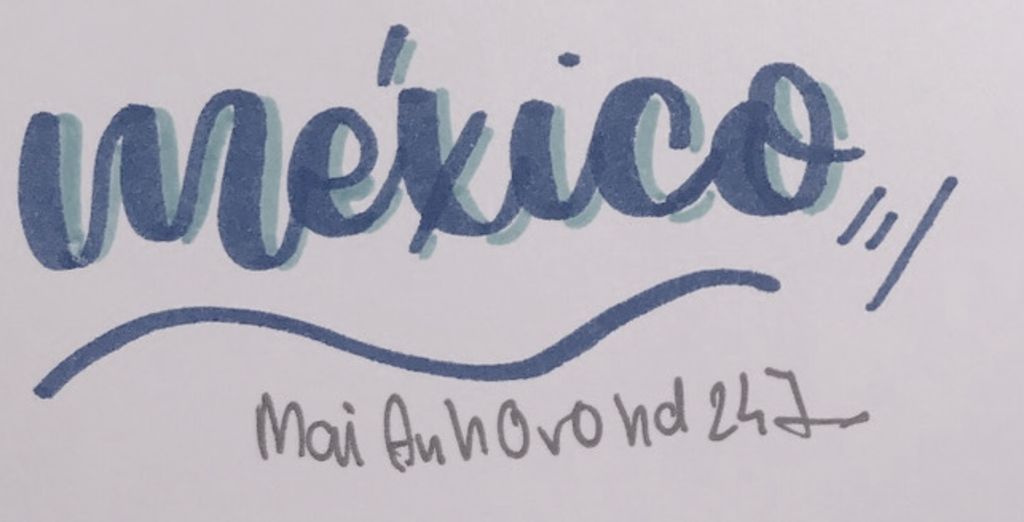 méxico
Mai Anh Orond 247